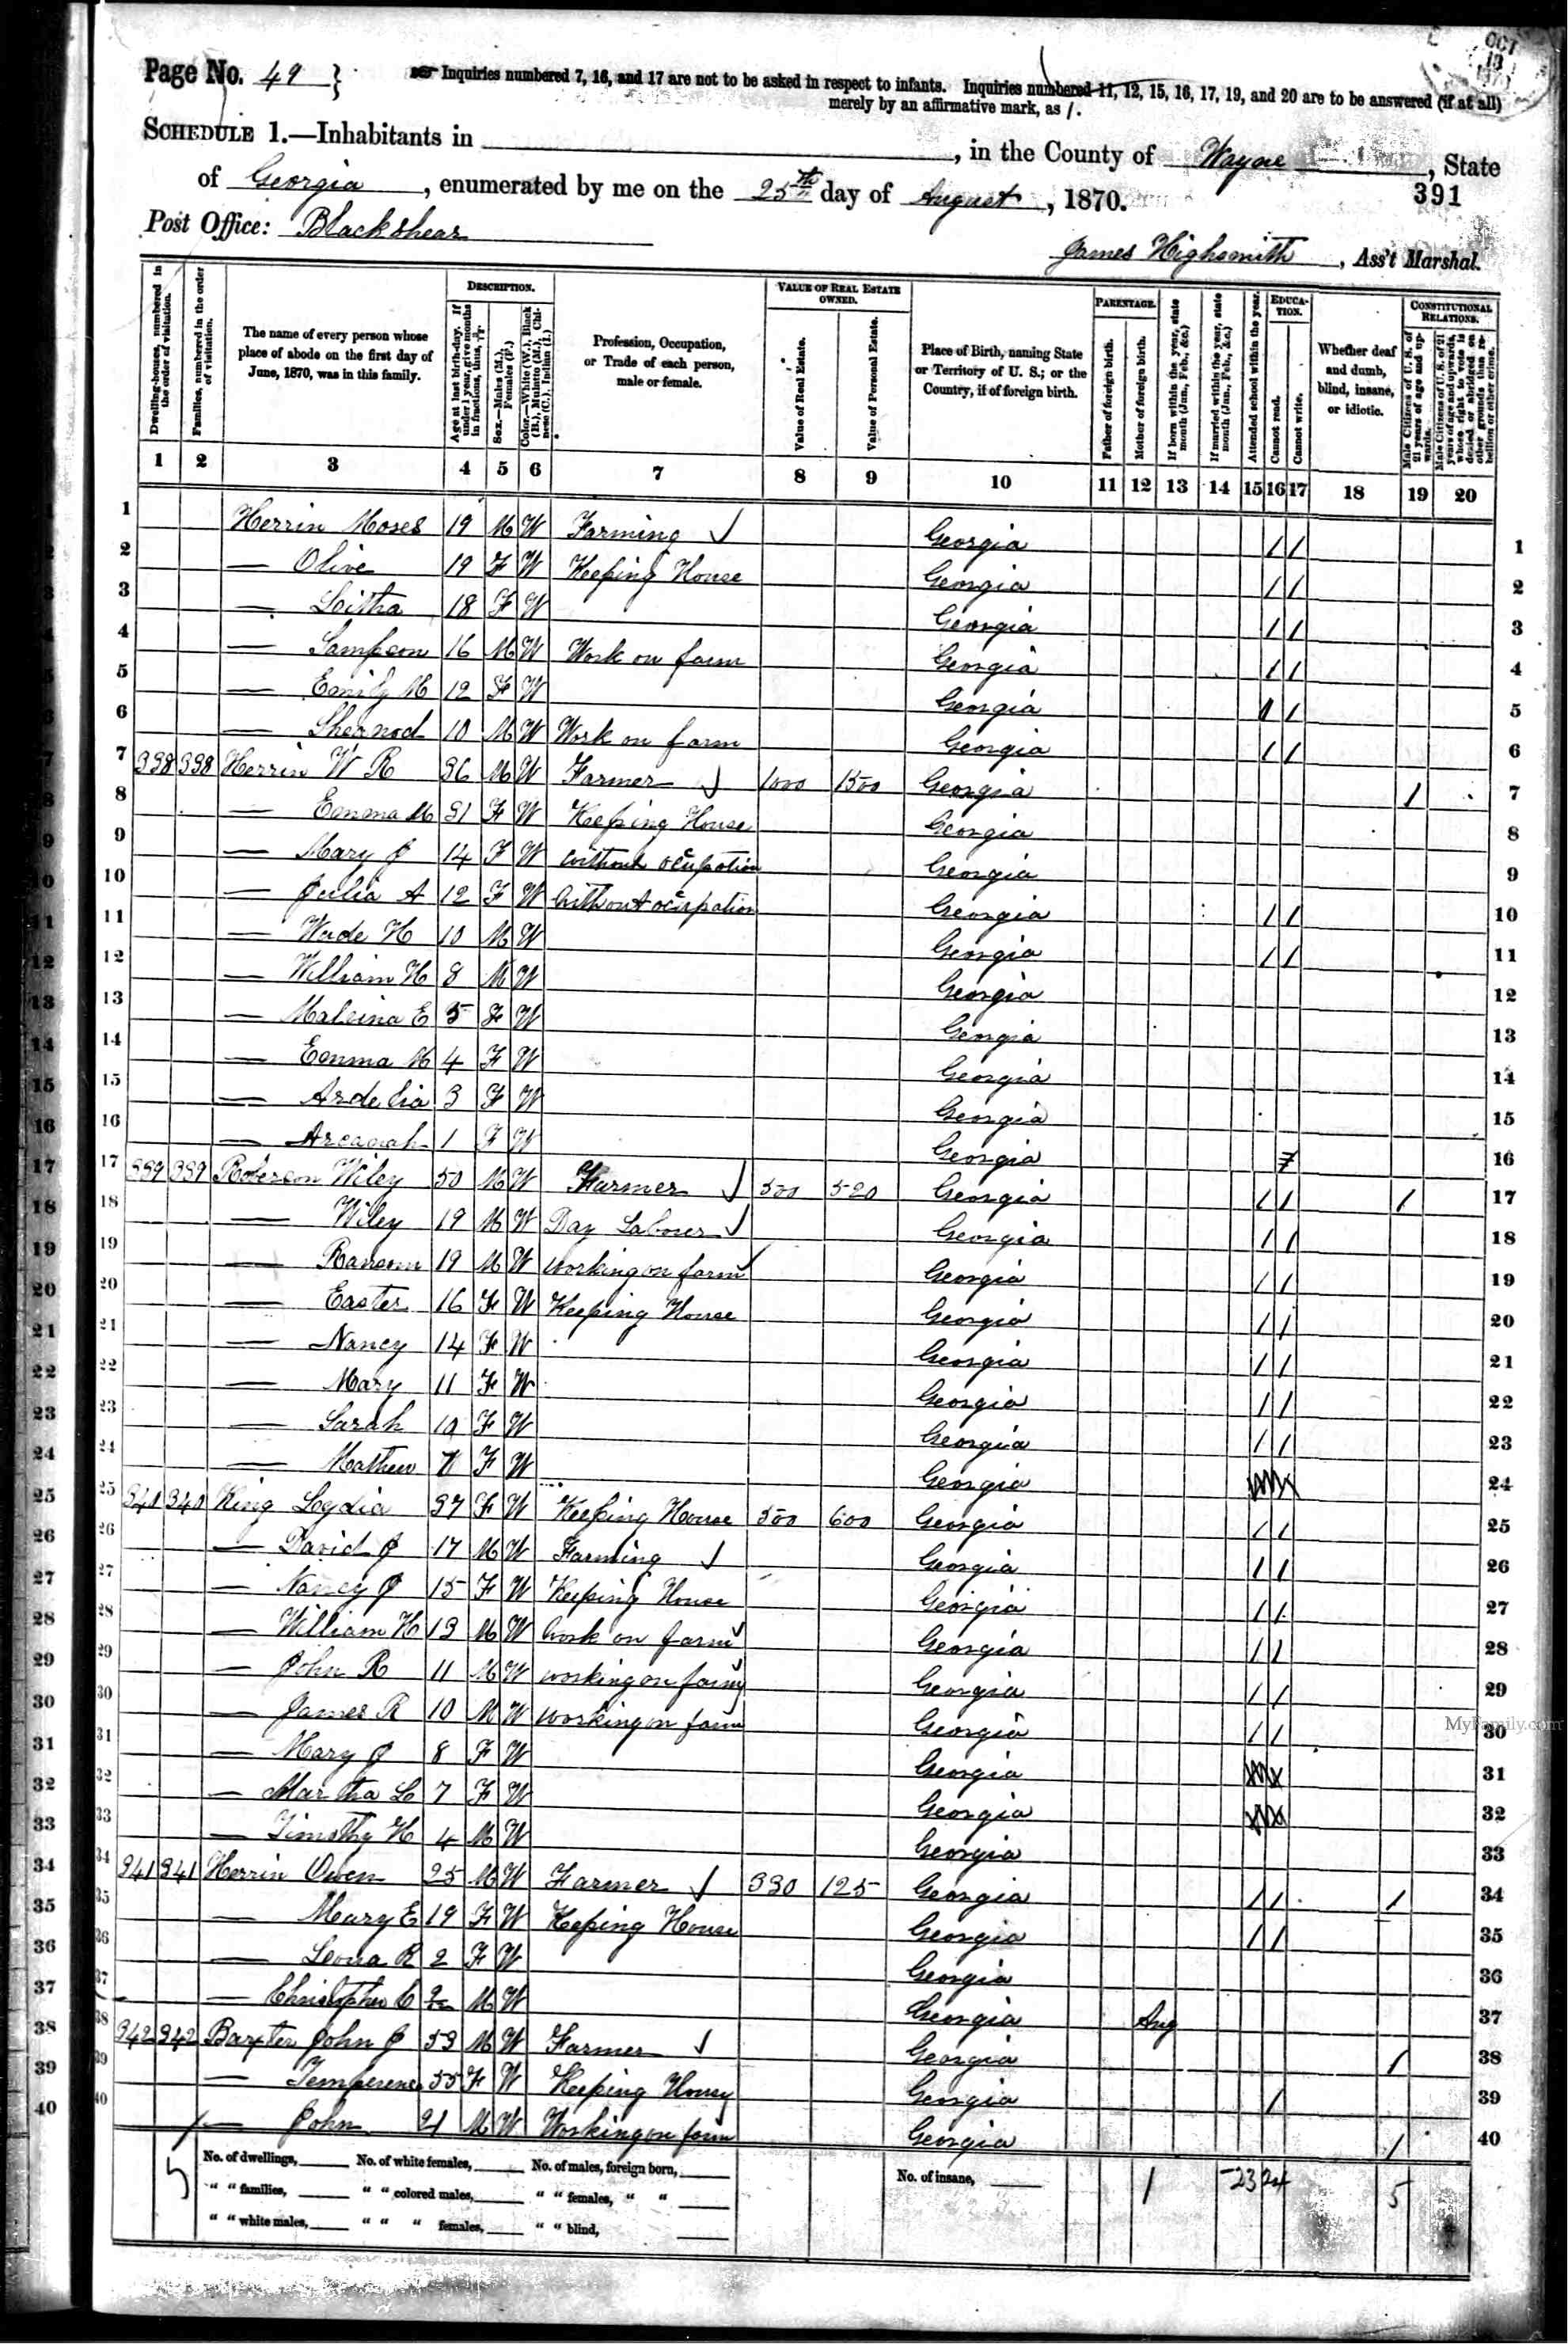 Page No. 49 }
Inquiries numbered 7, 16, and 17 are not to be asked in respect to infants. Inquiries numbered 11, 12, 15, 16, 17, 19, and 20 are to be answered (if at all)
merely by an affirmative mark, as /.
OCT 1870
SCHEDULE 1.—Inhabitants in , in the County of Wayne , State
of Georgia , enumerated by me on the 25th day of August , 1870.
391
Post Office: Blackshear
James Highsmith , Ass't Marshal.
Dwelling-houses, numbered in the order of visitation.
Families, numbered in the order of visitation.
The name of every person whose place of abode on the first day of June, 1870, was in this family.
DESCRIPTION.
Age at last birth-day. If under 1 year, give months in fractions, thus,
Sex.—Males (M.), Females (F.)
Color.—White (W.), Black (B.), Mulatto (M.), Chinese (C.), Indian (I.)
Profession, Occupation, or Trade of each person, male or female.
VALUE OF REAL ESTATE OWNED.
Value of Real Estate.
Value of Personal Estate.
Place of Birth, naming State or Territory of U. S.; or the Country, if of foreign birth.
PARENTAGE.
Father of foreign birth.
Mother of foreign birth.
If born within the year, state month (Jan., Feb., &c.)
If married within the year, state month (Jan., Feb., &c.)
Attended school within the year.
EDUCATION.
Cannot read.
Cannot write.
Whether deaf and dumb, blind, insane, or idiotic.
CONSTITUTIONAL RELATIONS.
Male Citizens of U. S. of 21 years of age and upwards.
Male Citizens of U. S. of 21 years of age and upwards, whose right to vote is denied or abridged on other grounds than rebellion or other crime.
1 2 3 4 5 6 7 8 9 10 11 12 13 14 15 16 17 18 19 20
1 Herrin Moses 19 M W Farming Georgia / / 1
2 — Olive 19 F W Keeping House Georgia / / 2
3 — Leitha 18 F W Georgia / / 3
4 — Sampson 16 M W Work on farm Georgia / / 4
5 — Emily M 12 F W Georgia / / 5
6 — Shearod 10 M W Work on farm Georgia / / 6
7 338 338 Herrin W R 36 M W Farmer 1000 1500 Georgia / 7
8 — Emma M 31 F W Keeping House Georgia 8
9 — Mary J 14 F W Without ocupation Georgia 9
10 — Julia A 12 F W Without ocupation Georgia / / 10
11 — Wade H 10 M W Georgia / / 11
12 — William H 8 M W Georgia 12
13 — Malvina E 5 F W Georgia 13
14 — Emma M 4 F W Georgia 14
15 — Ardelia 3 F W Georgia 15
16 — 1 F W Georgia 16
17 339 339 Roberson Wiley 50 M W Farmer 500 520 Georgia / / / 17
18 — Wiley 19 M W Day Laborer Georgia / / 18
19 — Ransom 19 M W Working on farm Georgia / / 19
20 — Easter 16 F W Keeping House Georgia / / 20
21 — Nancy 14 F W Georgia / / 21
22 — Mary 11 F W Georgia / / 22
23 — Sarah 10 F W Georgia / / 23
24 — Mathew F W Georgia 24
25 340 340 King Lydia 37 F W Keeping House 500 600 Georgia / / 25
26 — David J 17 M W Farming Georgia / / 26
27 — Nancy J 15 F W Keeping House Georgia / / 27
28 — William H 13 M W Work on farm Georgia / / 28
29 — John R 11 M W working on farm Georgia / / 29
30 — James R 10 M W working on farm Georgia / / 30
MyFamily.com
31 — Mary J 8 F W Georgia 31
32 — Martha L 7 F W Georgia 32
33 — Timothy H 4 M W Georgia 33
34 341 341 Herrin Owen 25 M W Farmer 330 125 Georgia / / / 34
35 — Mary E 19 F W Keeping House Georgia / / 35
36 — Leona R 2 F W Georgia 36
37 — Christopher C M W Georgia Aug 37
38 342 342 Baxter John J 53 M W Farmer Georgia / 38
39 — Temperence 55 F W Keeping House Georgia / 39
40 — John 21 M W Working on farm Georgia / 40
5 No. of dwellings, No. of white females, No. of males, foreign born, No. of insane, 1 23 24 5
" " families, " " colored males, " " females, " "
" " white males, " " " females, " " blind,